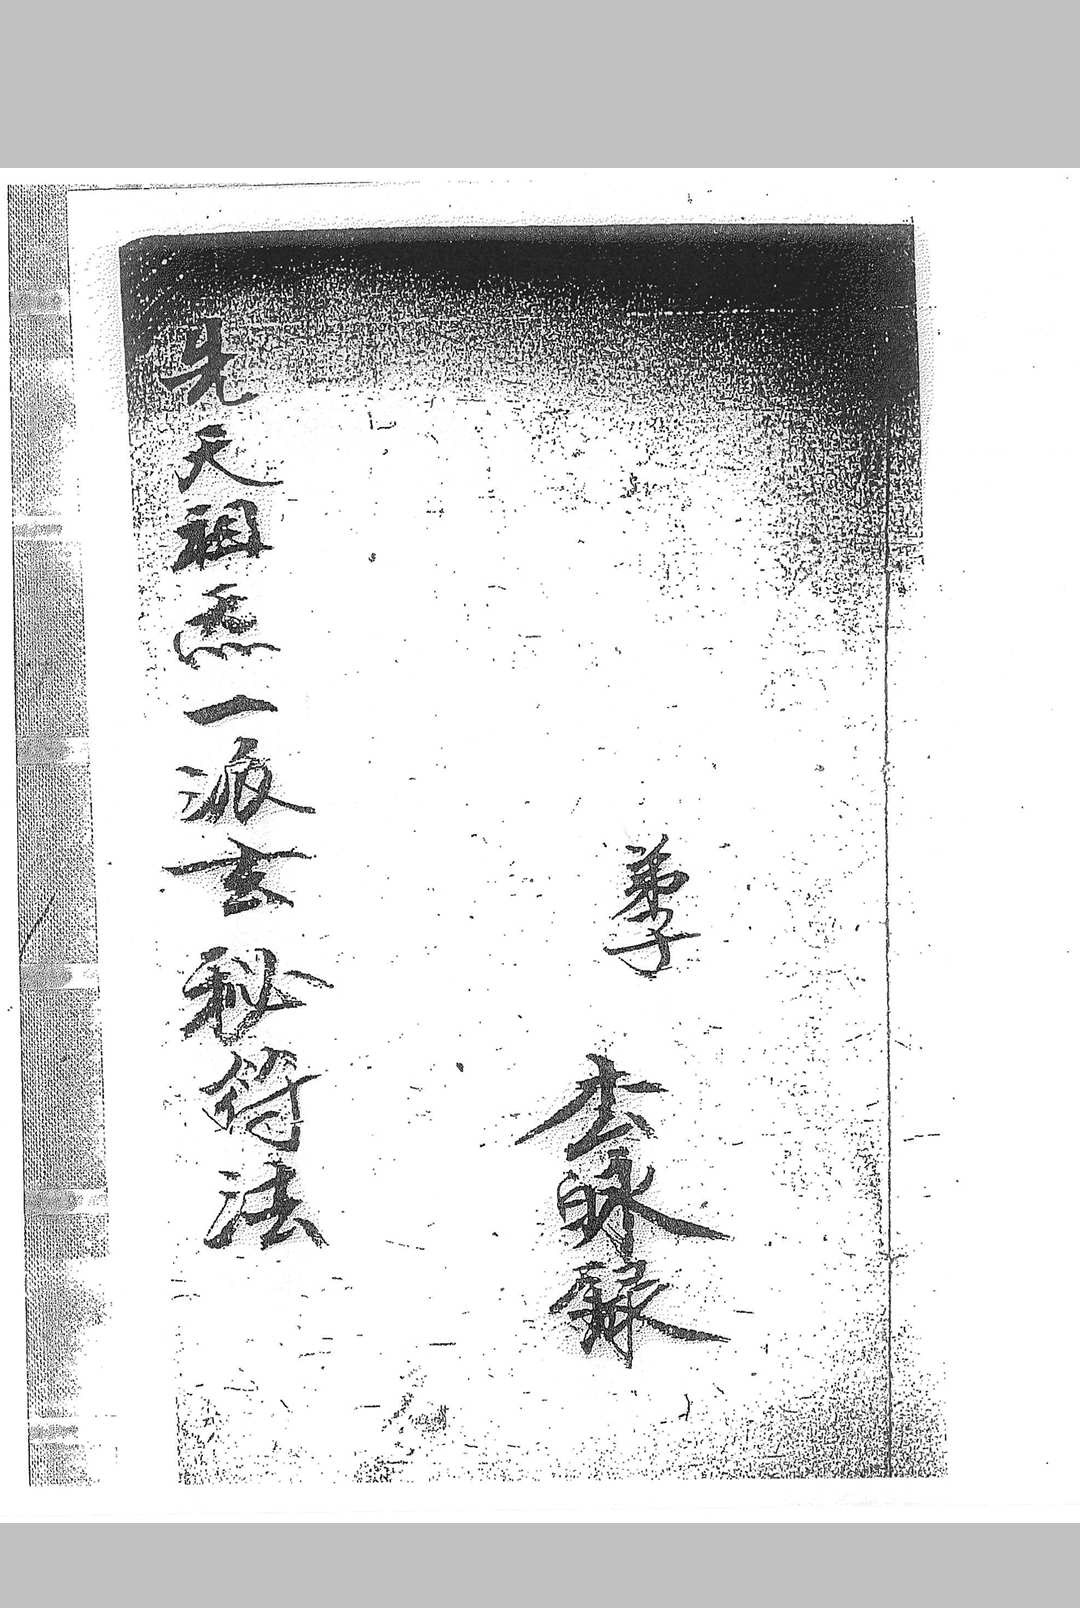 先天祖炁一派玄秘符法
弟子 錄